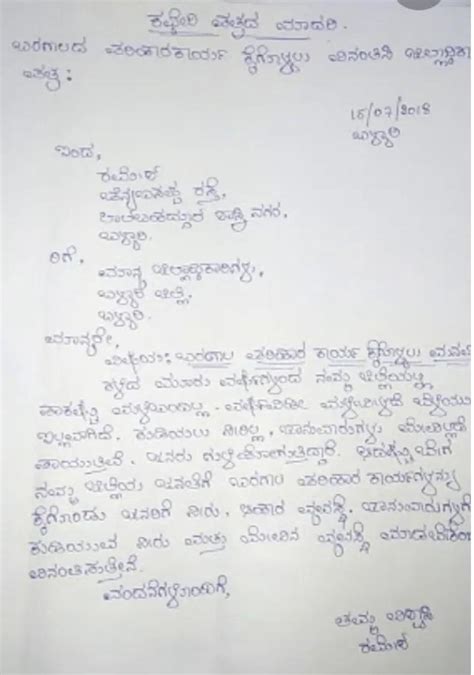 ಕಛೇರಿ ಪತ್ರದ ಮಾದರಿ.
ಬರಗಾಲದ ಪರಿಹಾರಕಾರ್ಯ ಕೈಗೊಳ್ಳಲು ವಿನಂತಿಸಿ ಜಿಲ್ಲಾಧಿಕಾ
ಪತ್ರ :
15/07/2018
ಬಳ್ಳಾರಿ
ಇಂದ,
ರಮೇಶ
ಚೆನ್ನಬಸಪ್ಪ ರಸ್ತೆ,
ಲಾಲಬಹದ್ದೂರ ಶಾಸ್ತ್ರಿ ನಗರ,
ಬಳ್ಳಾರಿ.
ರಿಗೆ,
ಮಾನ್ಯ ಜಿಲ್ಲಾಧಿಕಾರಿಗಳು,
ಬಳ್ಳಾರಿ ಜಿಲ್ಲೆ,
ಬಳ್ಳಾರಿ.
ಮಾನ್ಯರೇ,
ವಿಷಯ: ಬರಗಾಲ ಪರಿಹಾರ ಕಾರ್ಯ ಕೈಗೊಳ್ಳಲು ಮನವಿ
ಕಳೆದ ಮೂರು ವರ್ಷಗಳಿಂದ ನಮ್ಮ ಜಿಲ್ಲೆಯಲ್ಲಿ
ಸಾಕಷ್ಟು ಮಳೆಯಾಗಿಲ್ಲ. ಮಳೆಯಿಲ್ಲದೆ ಬೆಳೆಯೂ
ಇಲ್ಲವಾಗಿದೆ. ಕುಡಿಯಲು ನೀರಿಲ್ಲ, ಜಾನುವಾರುಗಳು ಮೇವಿಲ್ಲದೆ
ಸಾಯುತ್ತಿವೆ. ಜನರು ಗುಳೆಹೋಗುತ್ತಿದ್ದಾರೆ. ಆದಷ್ಟು ಬೇಗ
ನಮ್ಮ ಜಿಲ್ಲೆಯ ಜನತೆಗೆ ಬರಗಾಲ ಪರಿಹಾರ ಕಾರ್ಯಗಳನ್ನು
ಕೈಗೊಂಡು ಜನರಿಗೆ ನೀರು, ಆಹಾರ ವ್ಯವಸ್ಥೆ, ಜಾನುವಾರುಗಳಿಗೆ
ಕುಡಿಯುವ ನೀರು ಮತ್ತು ಮೇವಿನ ವ್ಯವಸ್ಥೆ ಮಾಡಬೇಕೆಂದು
ವಿನಂತಿಸುತ್ತೇವೆ.
ವಂದನೆಗಳೊಂದಿಗೆ,
ತಮ್ಮ ವಿಶ್ವಾಸಿ
ರಮೇಶ